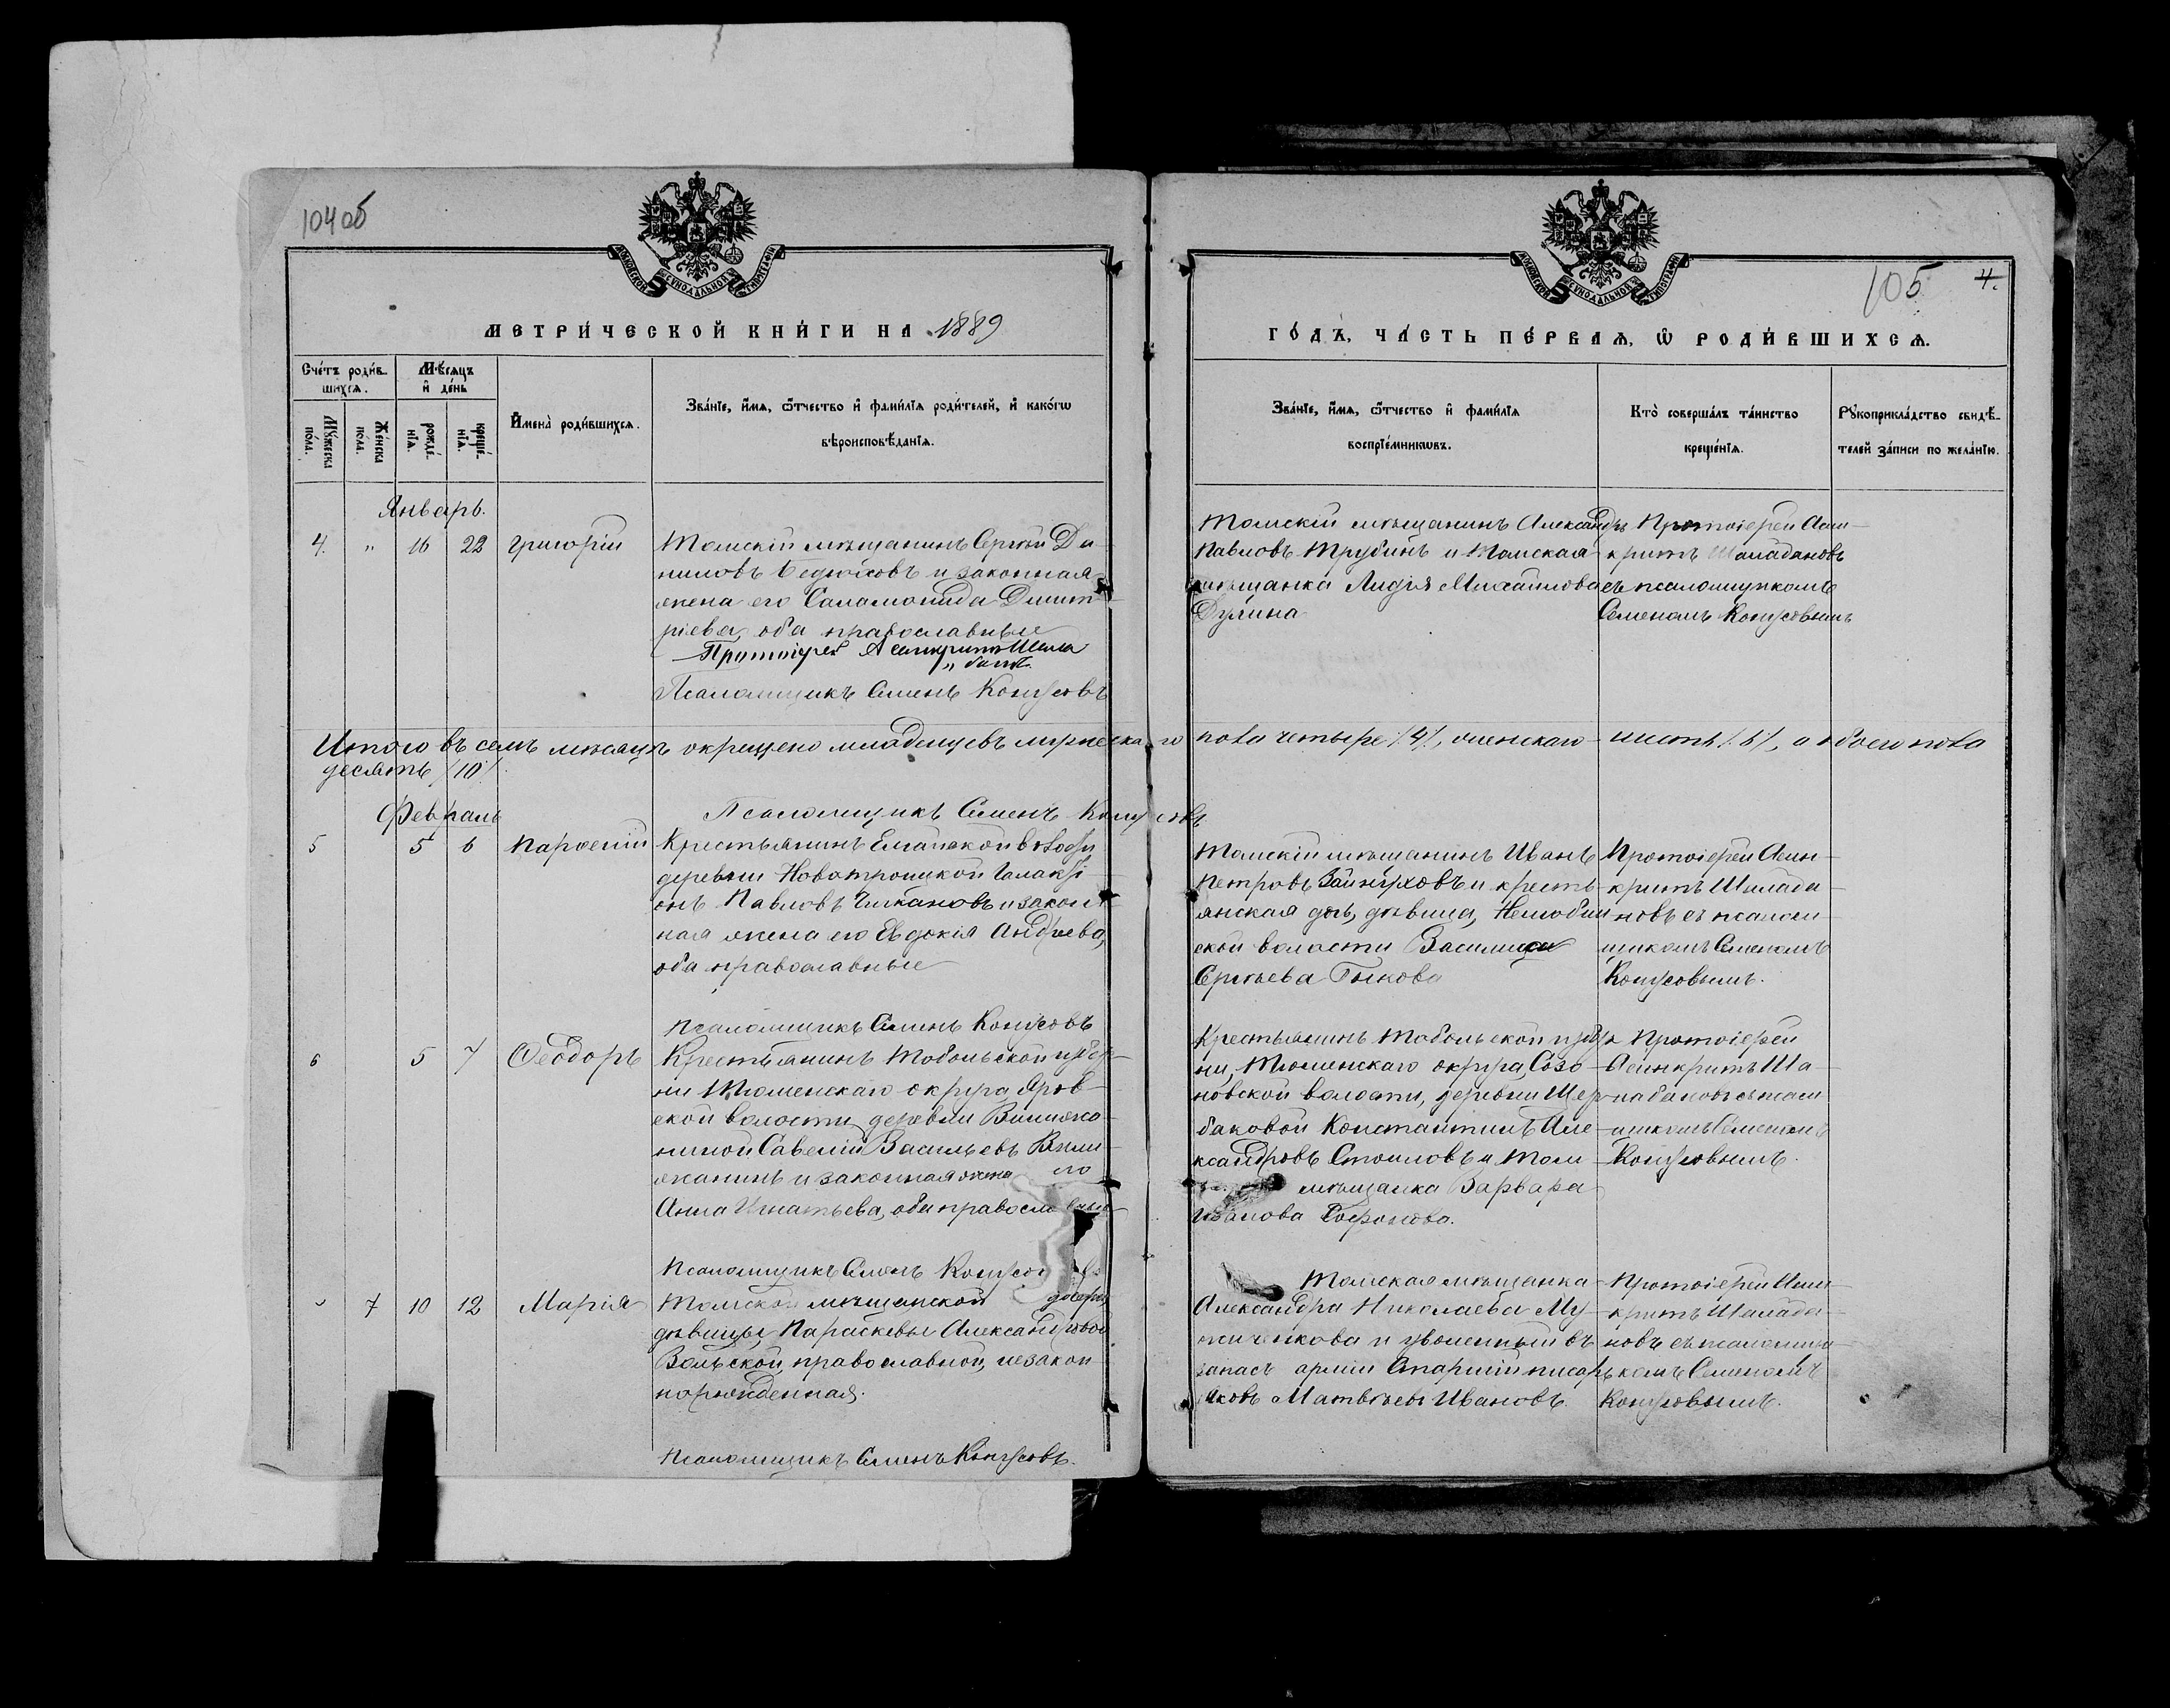 104 об
МЕТРИЧЕСКОЙ КНИГИ НА 1889
Счетъ родив-
шихся.
Мѣсяцъ
и день
Мужеска
пола.
Женска
пола.
рожде-
нія.
креще-
нія.
Имена родившихся.
Званіе, имя, отчество и фамилія родителей, и какого
вѣроисповѣданія.
Январь.
4. " 16 22 Григорій
Томскій мѣщанинъ Сергѣй Да-
ниловъ и законная
жена его Саламонида Димит-
ріева, оба православные
Протоіерей
Псаломщикъ Семенъ Конусовъ
Итого въ семъ мѣсяцѣ окрещено младенцевъ мужескаго пола четыре /4/, женскаго шесть /6/, а обоего пола
десять /10/.
Февраль
Псаломщикъ Семенъ Конусовъ
5 5 6 Парѳеній
Крестьянинъ волости
деревни Новотроицкой Галакті
онъ Павловъ Чикановъ и закон-
ная жена его Евдокія Андреева,
оба православные
Псаломщикъ Семенъ Конусовъ
6 5 7 Ѳеодоръ
Крестьянинъ Тобольской губер-
ніи Тюменскаго округа Яров-
ской волости деревни
Савелій Васильевъ
и законная жена его
Анна Игнатьева, оба православные
Псаломщикъ Семенъ Конусовъ
" 7 10 12 Марія
Томской мѣщанской дочери,
дѣвицы, Параскевы Александровой
Вольской, православной, незакон-
норожденная.
Псаломщикъ Семенъ Конусовъ.
105 4.
ГОДЪ, ЧАСТЬ ПЕРВАЯ, Ѡ РОДИВШИХСЯ.
Званіе, имя, отчество и фамилія
воспріемниковъ.
Кто совершалъ таинство
крещенія.
Рукоприкладство свидѣ-
телей записи по желанію.
Томскій мѣщанинъ Александръ
Павловъ Трубинъ и Томская
мѣщанка Лидія Михаилова
Протоіерей Асин-
критъ Шалабановъ
съ псаломщикомъ
Семеномъ Конусовымъ
Томскій мѣщанинъ Иванъ
Петровъ и кресть-
янская дочь, дѣвица, Нелюбин
ской волости Василиса
Сергѣева
Протоіерей Асин-
критъ Шалаба-
новъ съ псалом-
щикомъ Семеномъ
Конусовымъ.
Крестьянинъ Тобольской губер
ніи, Тюменскаго округа, Созо-
новской волости, деревни Щер-
баковой Константинъ Але-
ксандровъ Стоиловъ и Том
мѣщанка Варвара
Иванова Софонова.
Протоіерей
Асинкритъ Ша-
лабановъ съ псалом
щикомъ Семеномъ
Конусовымъ.
Томская мѣщанка
Александра Николаева Му-
жиченкова и уволенный въ
запасъ арміи Старшій писарь
Яковъ Матвѣевъ Ивановъ.
Протоіерей Асин-
критъ Шалаба-
новъ съ псаломщи-
комъ Семеномъ
Конусовымъ.